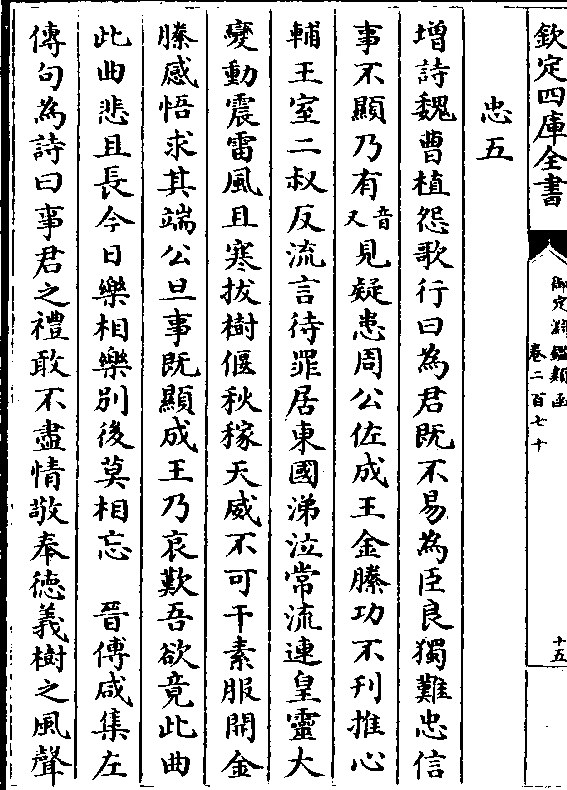 欽定四庫全書
御定淵鑑類函
卷二百七十
十五
忠五
增詩魏曹植怨歌行曰為君既不易為臣良獨難忠信
事不顯乃有音又見疑患周公佐成王金縢功不刊推心
輔王室二叔反流言待罪居東國涕泣常流連皇靈大
變動震雷風且寒拔樹偃秋稼天威不可干素服開金
縢感悟求其端公旦事既顯成王乃哀歎吾欲竟此曲
此曲悲且長今日樂相樂別後莫相忘　晉傅咸集左
傳句為詩曰事君之禮敢不盡情敬奉德義樹之風聲